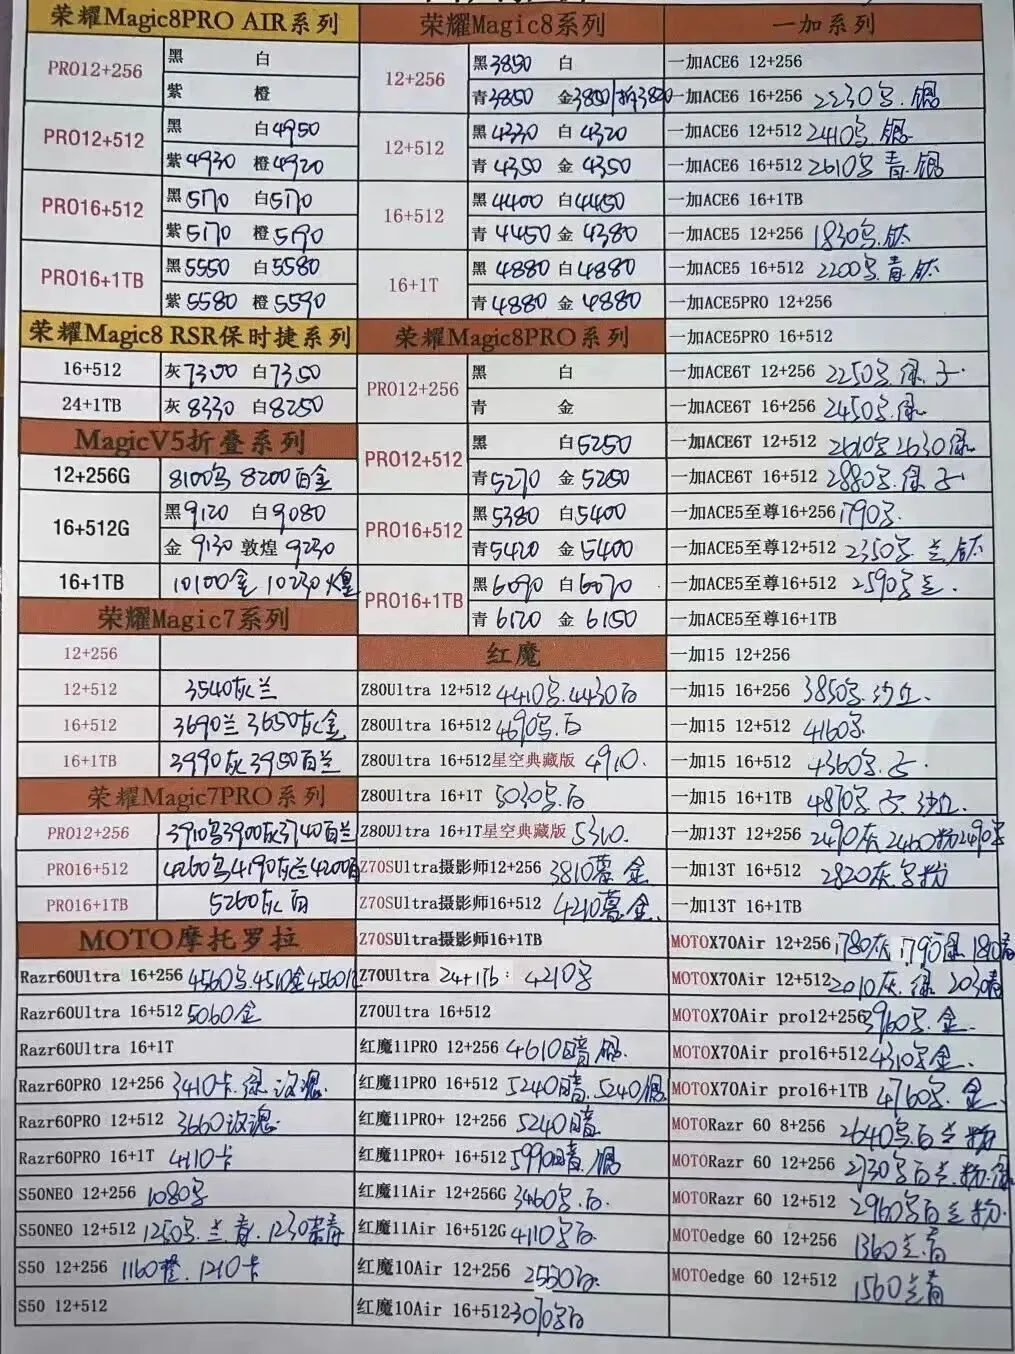 荣耀Magic8PRO AIR系列
PRO12+256
黑 白
紫 橙
PRO12+512
黑 白4950
紫4930 橙4920
PRO16+512
黑5170 白5170
紫5170 橙5190
PRO16+1TB
黑5550 白5580
紫5580 橙5590
荣耀Magic8 RSR保时捷系列
16+512 灰7300 白7350
24+1TB 灰8330 白8250
MagicV5折叠系列
12+256G 8100 8200白金
16+512G
黑9120 白9080
金9130 敦煌9230
16+1TB 10100金 10230煌
荣耀Magic7系列
12+256
12+512 3540灰兰
16+512 3690兰 3650灰金
16+1TB 3990灰 3950白兰
荣耀Magic7PRO系列
PRO12+256 3910 3900灰 3740白兰
PRO16+512 4260 4190灰兰4200白
PRO16+1TB 5260灰白
MOTO摩托罗拉
Razr60Ultra 16+256 4560 4510金4560
Razr60Ultra 16+512 5060金
Razr60Ultra 16+1T
Razr60PRO 12+256 3410卡.绿 玫瑰.
Razr60PRO 12+512 3660玫瑰.
Razr60PRO 16+1T 4110卡
S50NEO 12+256 1080
S50NEO 12+512 1250 兰.青. 1230
S50 12+256 1160橙. 1210卡
S50 12+512
荣耀Magic8系列
12+256
黑3850 白
青3850 金3800
12+512
黑4330 白4320
青4350 金4350
16+512
黑4400 白4450
青4450 金4380
16+1T
黑4880 白4880
青4880 金4880
荣耀Magic8PRO系列
PRO12+256
黑 白
青 金
PRO12+512
黑 白5250
青5270 金5250
PRO16+512
黑5380 白5400
青5420 金5400
PRO16+1TB
黑6090 白6070
青6120 金6150
红魔
Z80Ultra 12+512 4410 4430白
Z80Ultra 16+512 4690 白
Z80Ultra 16+512星空典藏版 4910.
Z80Ultra 16+1T 5030 白
Z80Ultra 16+1T星空典藏版 5310.
Z70SUltra摄影师12+256 3810暮金
Z70SUltra摄影师16+512 4210暮金.
Z70SUltra摄影师16+1TB
Z70Ultra 24+1Tb: 4210
Z70Ultra 16+512
红魔11PRO 12+256 4610暗.银.
红魔11PRO 16+512 5240暗.5240银
红魔11PRO+ 12+256 5240暗
红魔11PRO+ 16+512 5990暗.银
红魔11Air 12+256G 3460 白.
红魔11Air 16+512G 4110 白
红魔10Air 12+256 2550白
红魔10Air 16+512 3070 白
一加系列
一加ACE6 12+256
一加ACE6 16+256 2230 银
一加ACE6 12+512 2410 银.
一加ACE6 16+512 2610 青.银
一加ACE6 16+1TB
一加ACE5 12+256 1830 钛
一加ACE5 16+512 2200 青.钛
一加ACE5PRO 12+256
一加ACE5PRO 16+512
一加ACE6T 12+256 2250 绿
一加ACE6T 16+256 2450 绿
一加ACE6T 12+512 2610 2630绿
一加ACE6T 16+512 2880 绿
一加ACE5至尊16+256 1790
一加ACE5至尊12+512 2350 兰.钛
一加ACE5至尊16+512 2590 兰.
一加ACE5至尊16+1TB
一加15 12+256
一加15 16+256 3850 沙丘.
一加15 12+512 4160
一加15 16+512 4360
一加15 16+1TB 4870 沙丘.
一加13T 12+256 2490灰 2460粉2490
一加13T 16+512 2820灰 粉
一加13T 16+1TB
MOTOX70Air 12+256 1780灰 1790绿 1810
MOTOX70Air 12+512 2010灰.绿 2030青
MOTOX70Air pro12+256 3960 金.
MOTOX70Air pro16+512 4310 金.
MOTOX70Air pro16+1TB 4760 金.
MOTORazr 60 8+256 2640 白兰粉
MOTORazr 60 12+256 2730 白兰.粉.绿
MOTORazr 60 12+512 2960 白兰粉.
MOTOedge 60 12+256 1360兰青
MOTOedge 60 12+512 1560兰青